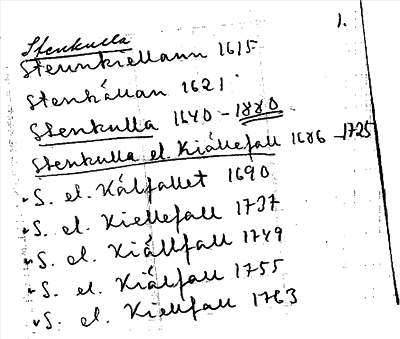 1.
Stenkulla
Stennkiellann 1615
Stenkällan 1621
Stenkulla 1640-1880
Stenkulla el. Kiällefall 1686-1725
S. el. Kälfallet 1690
S. el. Kiellefall 1737
S. el. Kiällfall 1749
S. el. Kiälfall 1755
S. el. Kiellfall 1763